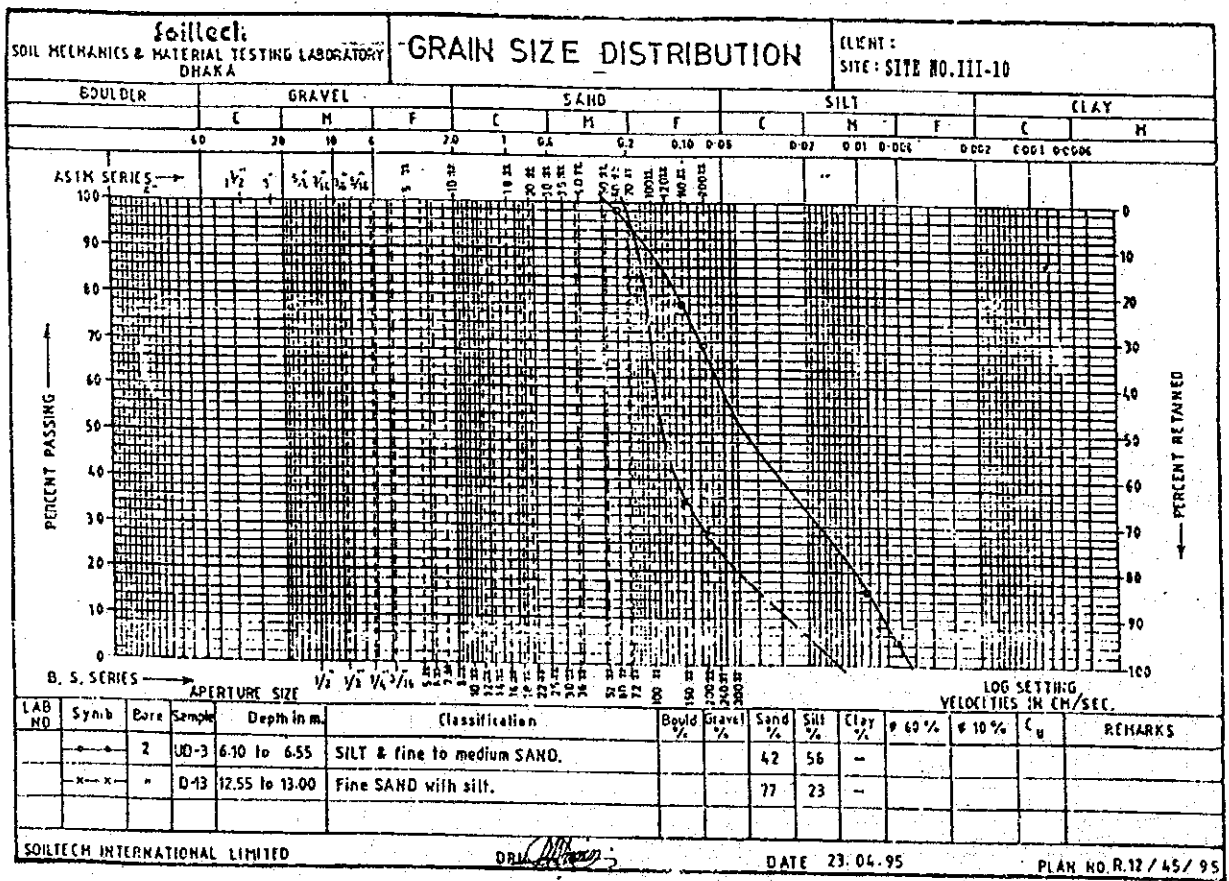 Soiltech
SOIL MECHANICS & MATERIAL TESTING LABORATORY
DHAKA
GRAIN SIZE DISTRIBUTION
CLIENT :
SITE : SITE NO.III-10
BOULDER GRAVEL SAND SILT CLAY
C M F C M F C M F C M
60 20 10 6 2.0 1 0.6 0.2 0.10 0.05 0.02 0.01 0.006 0.002 0.001 0.0006
ASTM SERIES
100
90
80
70
60
50
40
30
20
10
0
PERCENT PASSING
0
10
20
30
40
50
60
70
80
90
100
PERCENT RETAINED
B. S. SERIES
APERTURE SIZE
LOG SETTING
VELOCITIES IN CM/SEC.
LAB NO Symb Bore Sample Depth in m. Classification Bould % Gravel % Sand % Silt % Clay % # 60 % # 10 % Cu REMARKS
2 UD-3 6.10 to 6.55 SILT & fine to medium SAND. 42 56 -
" D-13 12.55 to 13.00 Fine SAND with silt. 77 23 -
SOILTECH INTERNATIONAL LIMITED
DATE 23.04.95
PLAN NO.R.12 / 45/ 95